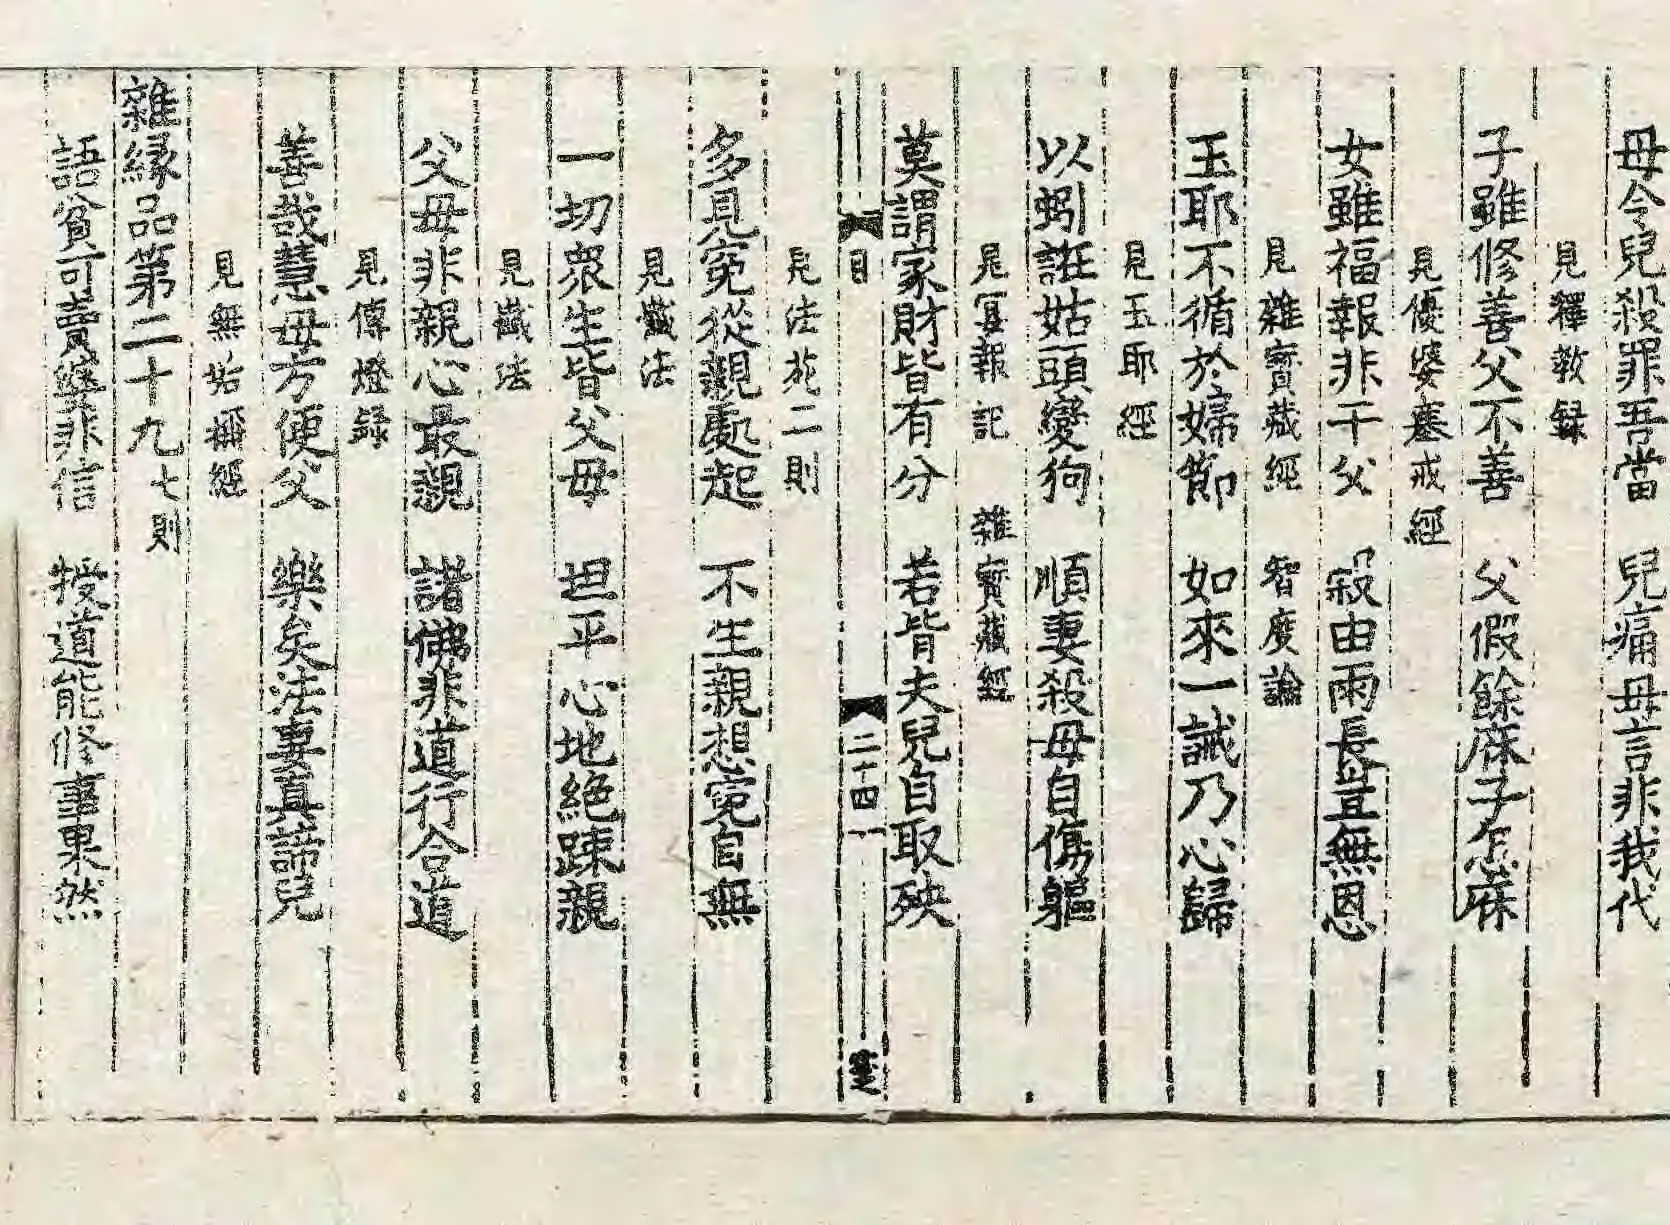 母令兒殺罪吾當　兒痛母言非我代
見釋教録
子雖修善父不善　父假餘庥子怎庥
見優婆塞戒經
女雖福報非干父　穀由雨長豈無恩
見雜寶藏經　智度論
玉耶不循於婦節　如來一誡乃心歸
見玉耶經
以蚓誑姑頭變狗　順妻殺母自傷軀
見冥報記　雜寶藏經
莫謂家財皆有分　若皆夫兒自取殃
見法苑二則
目　二十四
多見冤從親處起　不生親想冤自無
見懺法
一切衆生皆父母　坦平心地絶踈親
見懺法
父母非親心最親　諸佛非道行合道
見傳燈録
善哉慧母方便父　樂矣法妻真諦兒
見無垢稱經
雜縁品第二十九　七則
語貧可賣獘非信　授道能修事果然